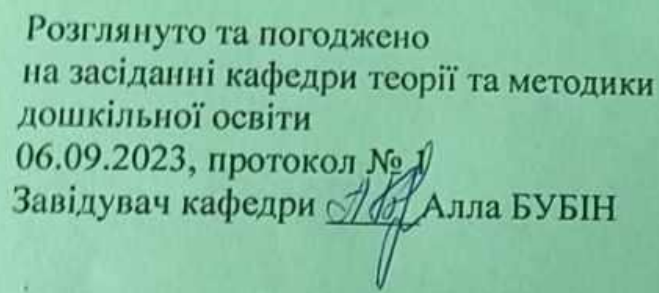 Розглянуто та погоджено
на засіданні кафедри теорії та методики
дошкільної освіти
06.09.2023, протокол № 1
Завідувач кафедри Алла БУБІН